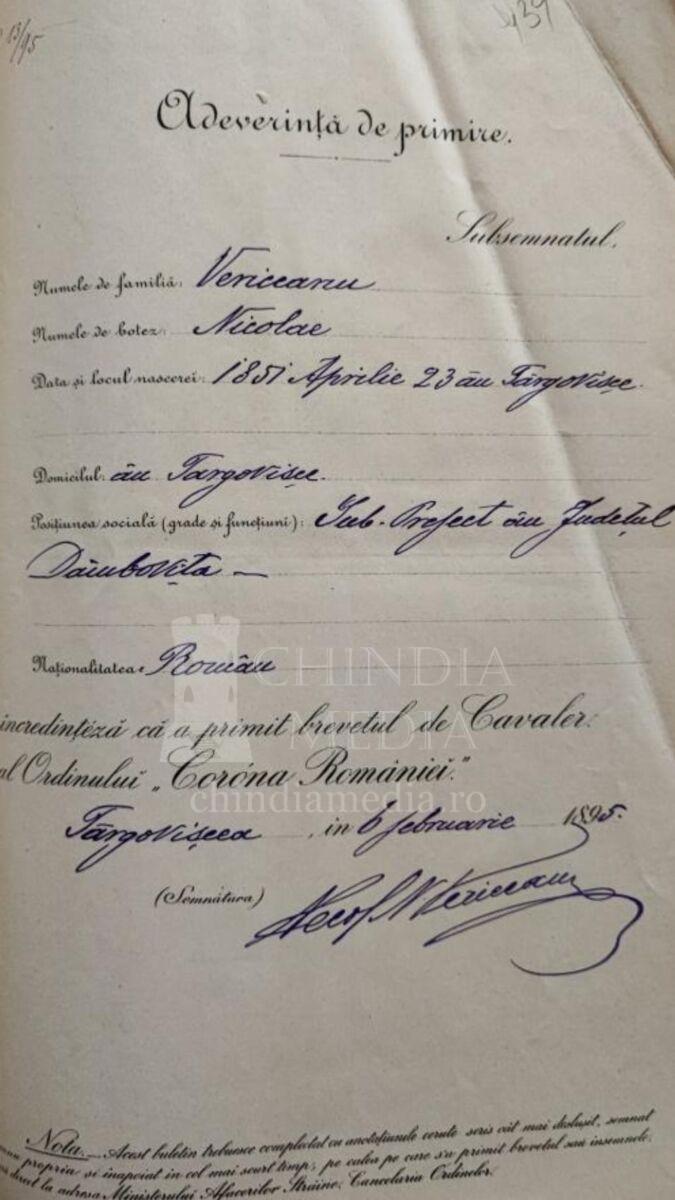 13/95
439
Adeverință de primire.
Subsemnatul,
Numele de familiă: Vericeanu
Numele de botez: Nicolae
Data și locul nascerei: 1851 Aprilie 23 în Târgoviște
Domiciliul: în Targoviște
Pozițiunea socială (grade și funcțiuni): Sub-Prefect în Județul
Dâmbovița —
Naționalitatea: Român
CHINDIA
MEDIA
incredințéză că a primit brevetul de Cavaler
al Ordinului „Coróna României."
chindiamedia.ro
Târgoviștea, in 6 februarie 1895.
(Semnătura) N Vericeanu
Nota.— Acest buletin trebuesce complectat cu anotațiunile cerute scris cât mai deslușit, semnat
propria și inapoiat in cel mai scurt timp, pe calea pe care s'a primit brevetul sau insemnele.
direct la adresa Ministerului Afacerilor Străine, Cancelaria Ordinelor.